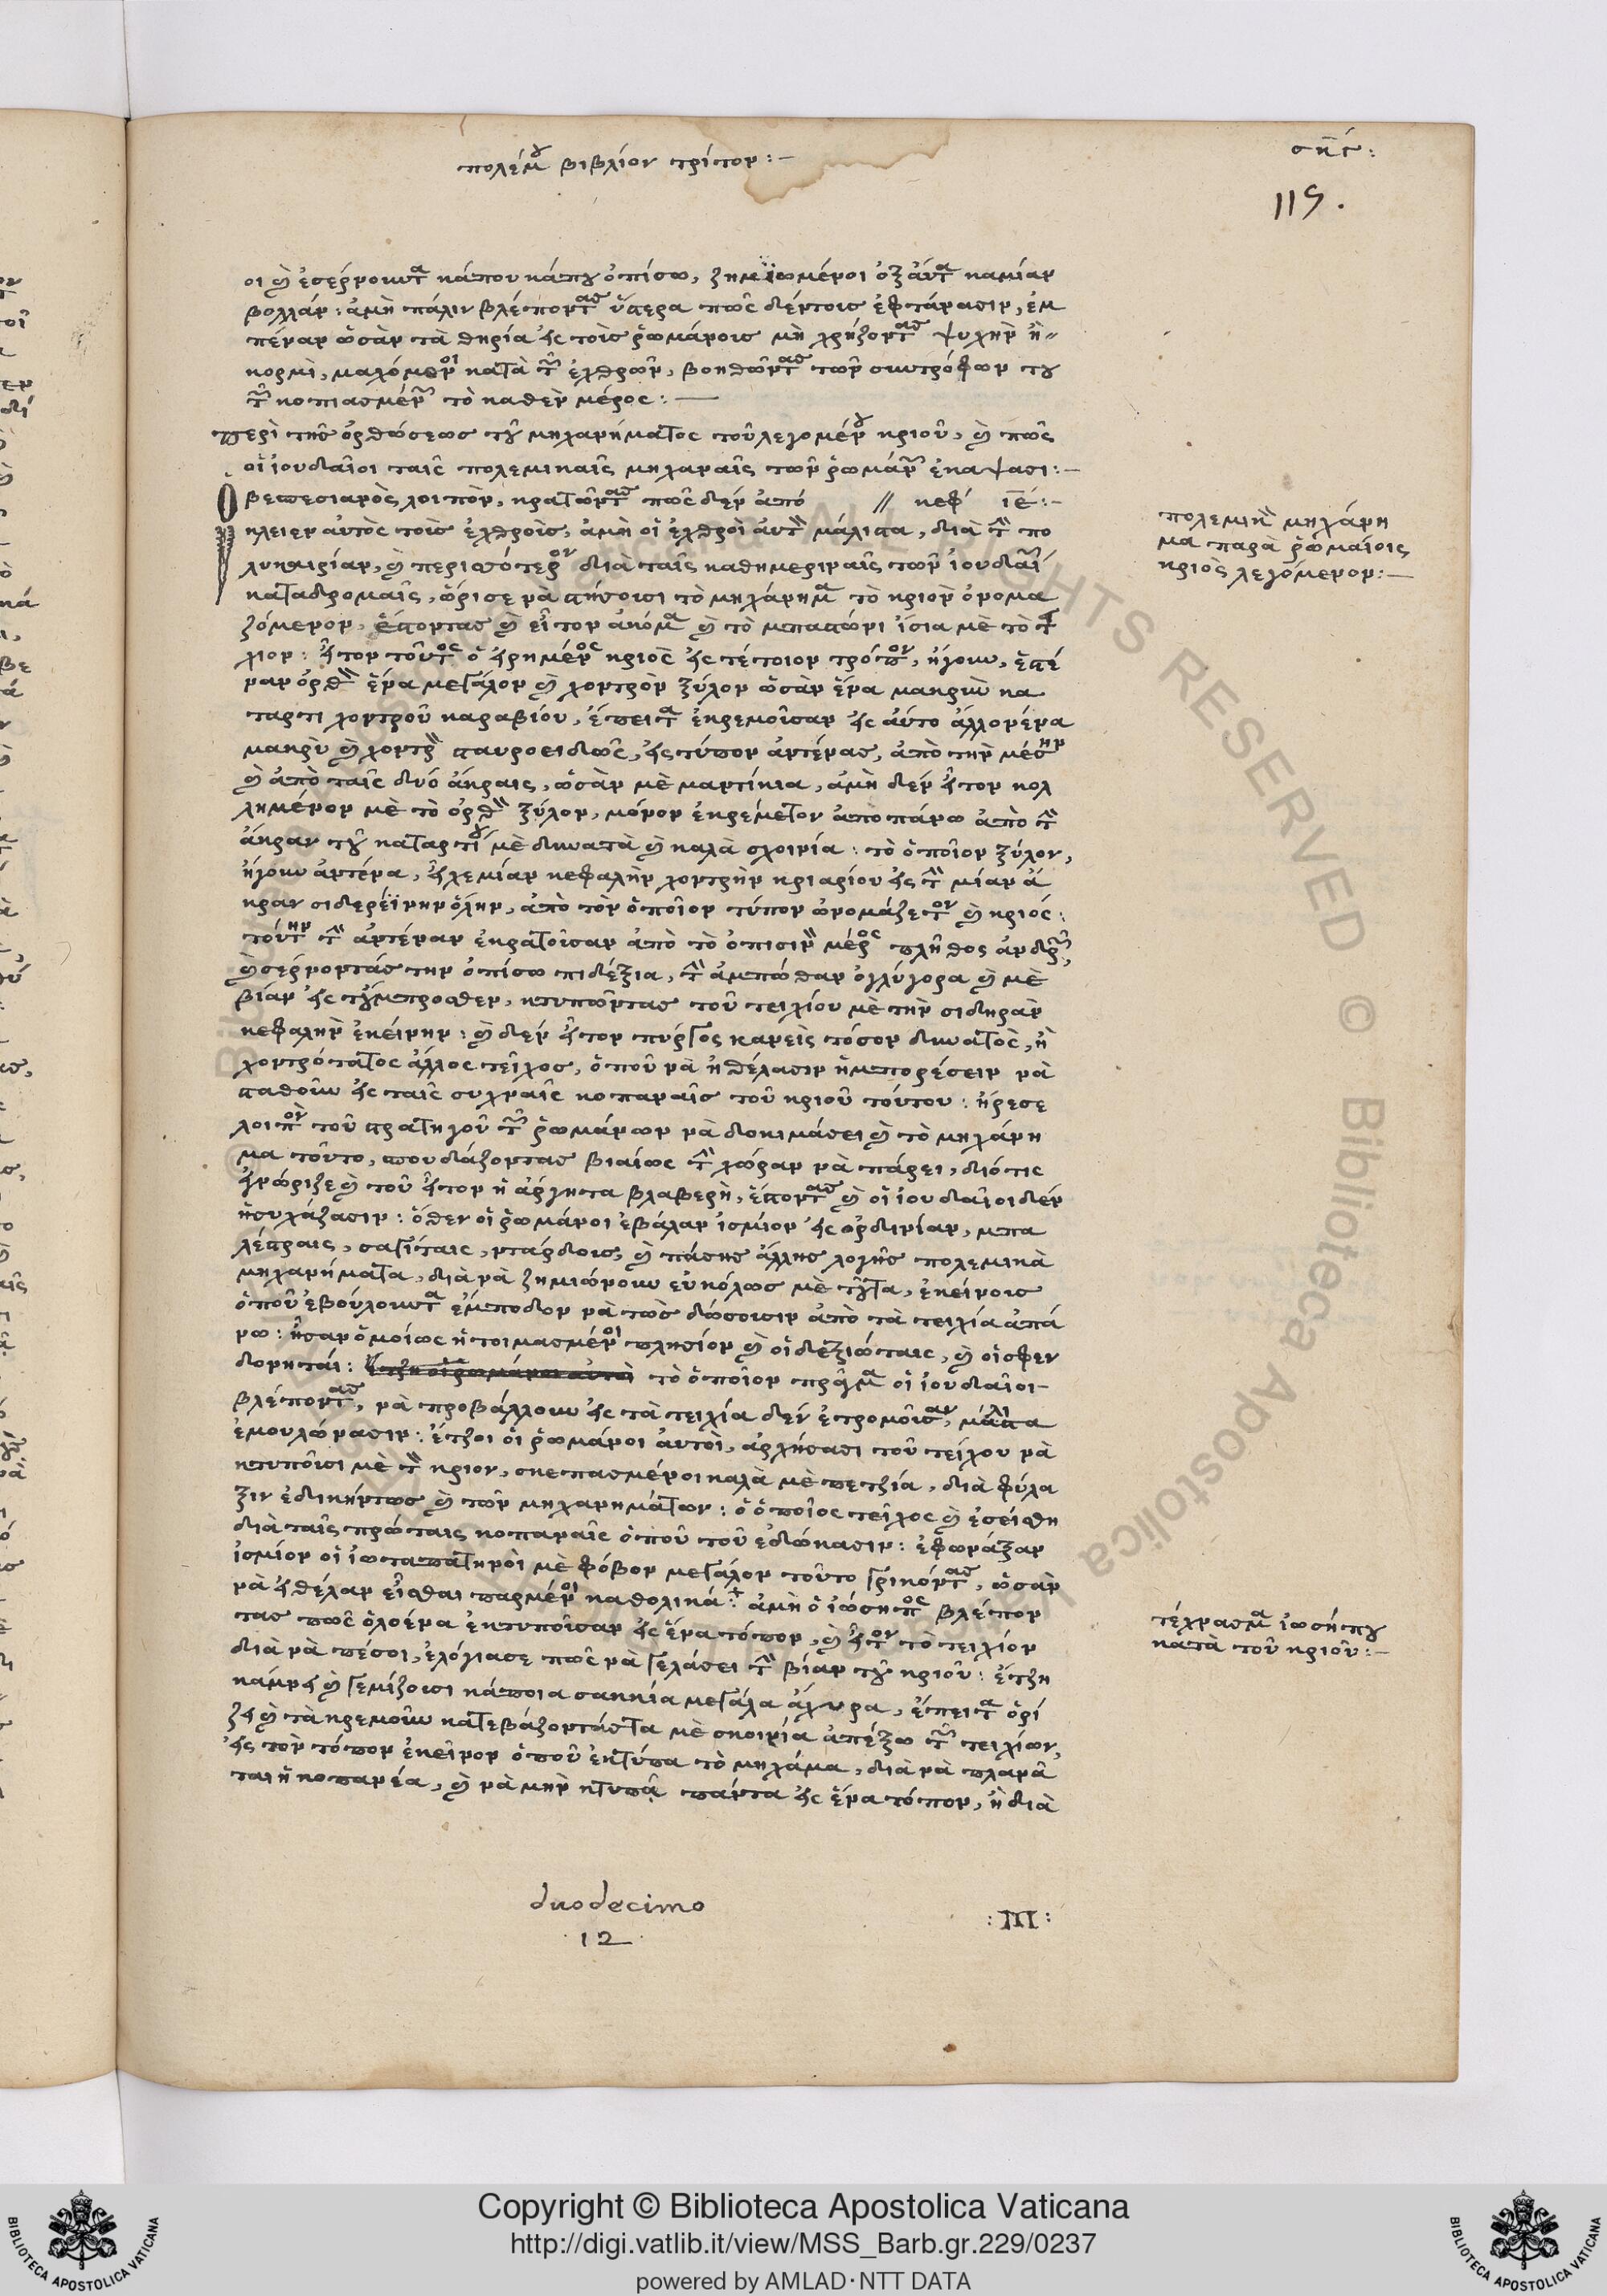 πολέμου βιβλίον τρίτον:—
σκϛ:
119.
οι καὶ ἐσέρνουντα κάπου κάπου ὀπίσω, ζημϊωμένοι ὀξ αὐτα καμίαν
βολλάν: ἀμὴ πάλιν βλέποντας ὕστερα πῶς δέντοις ἐφτάνασιν, ἐμ
πέναν ὡσὰν τὰ θηρία εἰς τοὺς ῥωμάνοις μὴ χρήζοντας ψυχὴν ἢ
κορμὶ, μαχόμενοι κατὰ τῶν ἐχθρῶν, βοηθῶντας τῶν συντρόφων του
τῶν κοπιασμένων τὸ καθὲν μέρος:—
περὶ τῆς ὀρθώσεως τοῦ μηχανήματος τοῦ λεγομένου κριοῦ, καὶ πῶς
οἱ ἰουδαῖοι ταῖς πολεμικαῖς μηχαναῖς τῶν ῥωμάνων ἐκαψασι:—
Ὁ βεσπεσιανὸς λοιπὸν, κρατῶντας πῶς δὲν ἀπό // κεφ ιε:—
κλειεν αὐτὸς τοὺς ἐχθροὺς, ἀμὴ οἱ ἐχθροὶ αὐτὸν μάλιστα, διὰ τὴν πο
λυκαιρίαν, καὶ περισσότερον διὰ ταῖς καθημεριναῖς τῶν ἰουδαίων
καταδρομαῖς, ὥρισε νὰ στήσουσι τὸ μηχάνημα τὸ κριὸν ὀνομα
ζόμενον, ἔστοντας καὶ εἶτον ἀκόμα καὶ τὸ μπαστώνι ἴσια μὲ τὸ τεῖ
χιον: εἶτον τοῦτος ὁ εἰρημένος κριὸς εἰς τέτοιον τρόπον, ἤγουν, ἐστέ
ναν ὀρθὸν ἕνα μεγάλον καὶ χοντρὸν ξύλον ὡσὰν ἕνα μακρὺν κα
τάρτι χοντροῦ καραβίου, ἔπειτα ἐκρεμοῦσαν εἰς αὐτο ἄλλον ἕνα
μακρὺ καὶ χοντρὸν σταυροειδῶς, εἰς τύπον ἀντένας, ἀπὸ τὴν μέσην
καὶ ἀπὸ ταῖς δυό ἄκραις, ὡσὰν μὲ μαρτίκια, ἀμὴ δὲν εἶτον κολ
λημένον μὲ τὸ ὀρθὸν ξύλον, μόνον ἐκρεμέτον ἀποπάνω ἀπὸ τὴν
ἄκραν τοῦ καταρτίου μὲ δυνατὰ καὶ καλὰ σχοινία: τὸ ὁποῖον ξύλον,
ἤγουν ἀντένα, εἶχε μίαν κεφαλὴν χοντρὴν κριαρίου εἰς τὴν μίαν ἄ
κραν σιδερέϊνην ὅλην, ἀπὸ τὸν ὁποῖον τύπον ὠνομάζετον καὶ κριός:
τούτην τὴν ἀντέναν ἐκρατοῦσαν ἀπὸ τὸ ὀπισινὸν μέρος πλῆθος ἀνδρῶν,
καὶ σέρνοντάς την ὀπίσω πιδέξια, τὴν ἀμπώθαν ὀγλύγορα καὶ μὲ
βίαν εἰς τοὔμπροσθεν, κτυπῶντας τοῦ τειχίου μὲ τὴν σιδηρὰν
κεφαλὴν ἐκείνην: καὶ δὲν εἶτον πύργος κανεὶς τόσον δυνατὸς, ἢ
χοντρότατος ἄλλος τεῖχος, ὁποῦ νὰ ἠθέλασιν ἠμπορέσειν νὰ
σταθοῦν εἰς ταῖς συχναῖς κοπαναῖς τοῦ κριοῦ τούτου: ἤρεσε
λοιπὸν τοῦ στρατηγοῦ τῶν ῥωμάνων νὰ δοκιμάσει καὶ τὸ μηχάνη
μα τοῦτο, σπουδάζοντας βιαίως τὴν χώραν νὰ πάρει, διότις
ἐγνώριζε καὶ τοῦ εἶτον ἡ ἀργητα βλαβερὴ, ἔστοντας καὶ οἱ ἰουδαῖοι δὲν
ἡσυχάζασιν: ὅθεν οἱ ῥωμάνοι ἐβάλαν ἰσμίον εἰς ὀρδινίαν, μπα
λέστραις, σαγίταις, ντάρδοις, καὶ πάσης ἄλλης λογῆς πολεμικὰ
μηχανήματα, διὰ νὰ ζημιώνουν εὐκόλως μὲ τοῦτα, ἐκείνοις
ὁποῦ ἐβούλουντα ἔμποδον νὰ τῶς δώσουσιν ἀπὸ τὰ τειχία ἀπά
νω: ἦσαν ὁμοίως ἡτοιμασμένοι πλησίον καὶ οἱ δεξιώταις, καὶ οἱ σφεν
δονηταί: τὸ ὁποῖον πρᾶγμα οἱ ἰουδαῖοι
βλέποντας, νὰ προβάλλουν εἰς τὰ τειχία δὲν ἐτρομοῦσαν, μάλιστα
ἐμουλώνασιν: ἔτζοι οἱ ῥωμάνοι αὐτοὶ, ἀρχήσασι τοῦ τείχου νὰ
κτυποῦσι μὲ τὸν κριον, σκεπασμένοι καλὰ μὲ πετζία, διὰ φύλα
ξιν ἐδικήντως καὶ τῶν μηχανημάτων: ὁ ὁποῖος τεῖχος καὶ ἐσείσθη
διὰ ταῖς πρώταις κοπαναῖς ὁποῦ τοῦ ἐδώκασιν: ἐφωνάξαν
ἰσμίον οἱ ἰωταπατηνοὶ μὲ φόβον μεγάλον τοῦτο γρικόντας, ὡσὰν
νὰ εἰθέλαν εἶσθαι παρμένοι καθολικά: ἀμὴ ὁ ἰώσηπος βλέπον
τας πῶς ὁλοένα ἐκτυποῦσαν εἰς ἕνα τόπον, καὶ εἶτον τὸ τειχίον
διὰ νὰ πέσοι, ἐλόγιασε πῶς νὰ γελάσει τὴν βίαν τοῦ κριοῦ: ἔτζη
κάμνει καὶ γεμίζουσι κάποια σακκία μεγάλα ἄχυρα, ἔπειτα ὁρί
ζει καὶ τὰ κρεμοῦν κατεβάζοντάς τα μὲ σκοινία ἀπέξω τῶν τειχίων,
εἰς τὸν τόπον ἐκεῖνον ὁποῦ ἐκτύπα τὸ μηχάμα, διὰ νὰ πλανᾶ
ται ἡ κοπανέα, καὶ νὰ μὴν κτυπᾷ πάντα εἰς ἕνα τόπον, ἢ διὰ
πολεμικὸν μηχάνη
μα παρὰ ῥωμαίοις
κριὸς λεγόμενον:—
τέχνασμα ἰωσήπου
κατὰ τοῦ κριοῦ:—
duodecimo
12
:III:
Copyright © Biblioteca Apostolica Vaticana
http://digi.vatlib.it/view/MSS_Barb.gr.229/0237
powered by AMLAD·NTT DATA
BIBLIOTECA APOSTOLICA VATICANA
BIBLIOTECA APOSTOLICA VATICANA